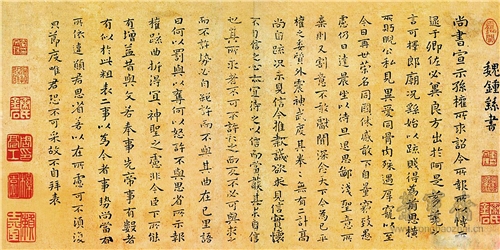 魏鍾繇書
尚書宣示孫權所求詔令所報所以博示
逮于卿佐必冀良方出於阿是芻蕘之
言可擇郎廟況繇始以疏賤得為前恩橫
所盱睨公私見異愛同骨肉殊遇厚寵以至
今日再世榮名同國休慼敢不自量竊致愚
慮仍日達晨坐以待旦退思鄙淺聖意所
棄則又割意不敢獻聞深念天下今為已平
權之委質外震神武度其拳拳無有二計高
尚自疏況未見信今推款誠欲求見信實懷
不自信之心亦宜待之以信而當護其未自信
也其所求者不可不許許之而反不必可與求之
而不許勢必自絕許而不與其曲在己里語
曰何以罰與以奪何以怒許不與思省所示報
權疏曲折得宜宜神聖之慮非今臣下所能
有增益昔與文若奉事先帝事有數者
有似於此粗表二事以為今者事勢尚當有
所依違願君思省若以在所慮可不須復
貌節度唯君恐不可采故不自拜表